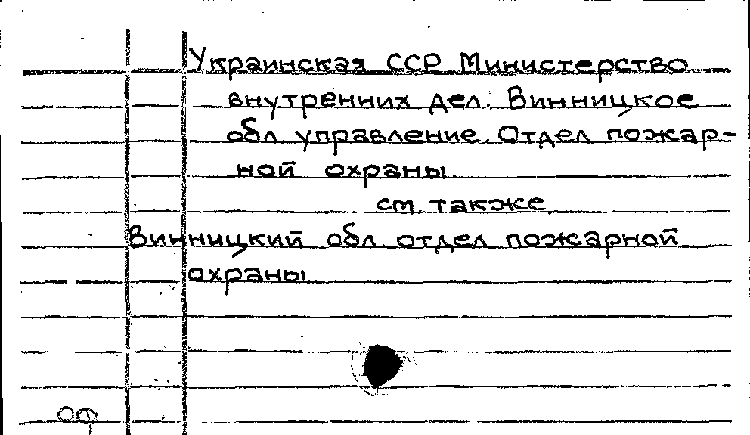 Украинская ССР Министерство
внутренних дел. Винницкое
обл управление. Отдел пожар-
ной охраны.
см. также
Винницкий обл отдел пожарной
охраны